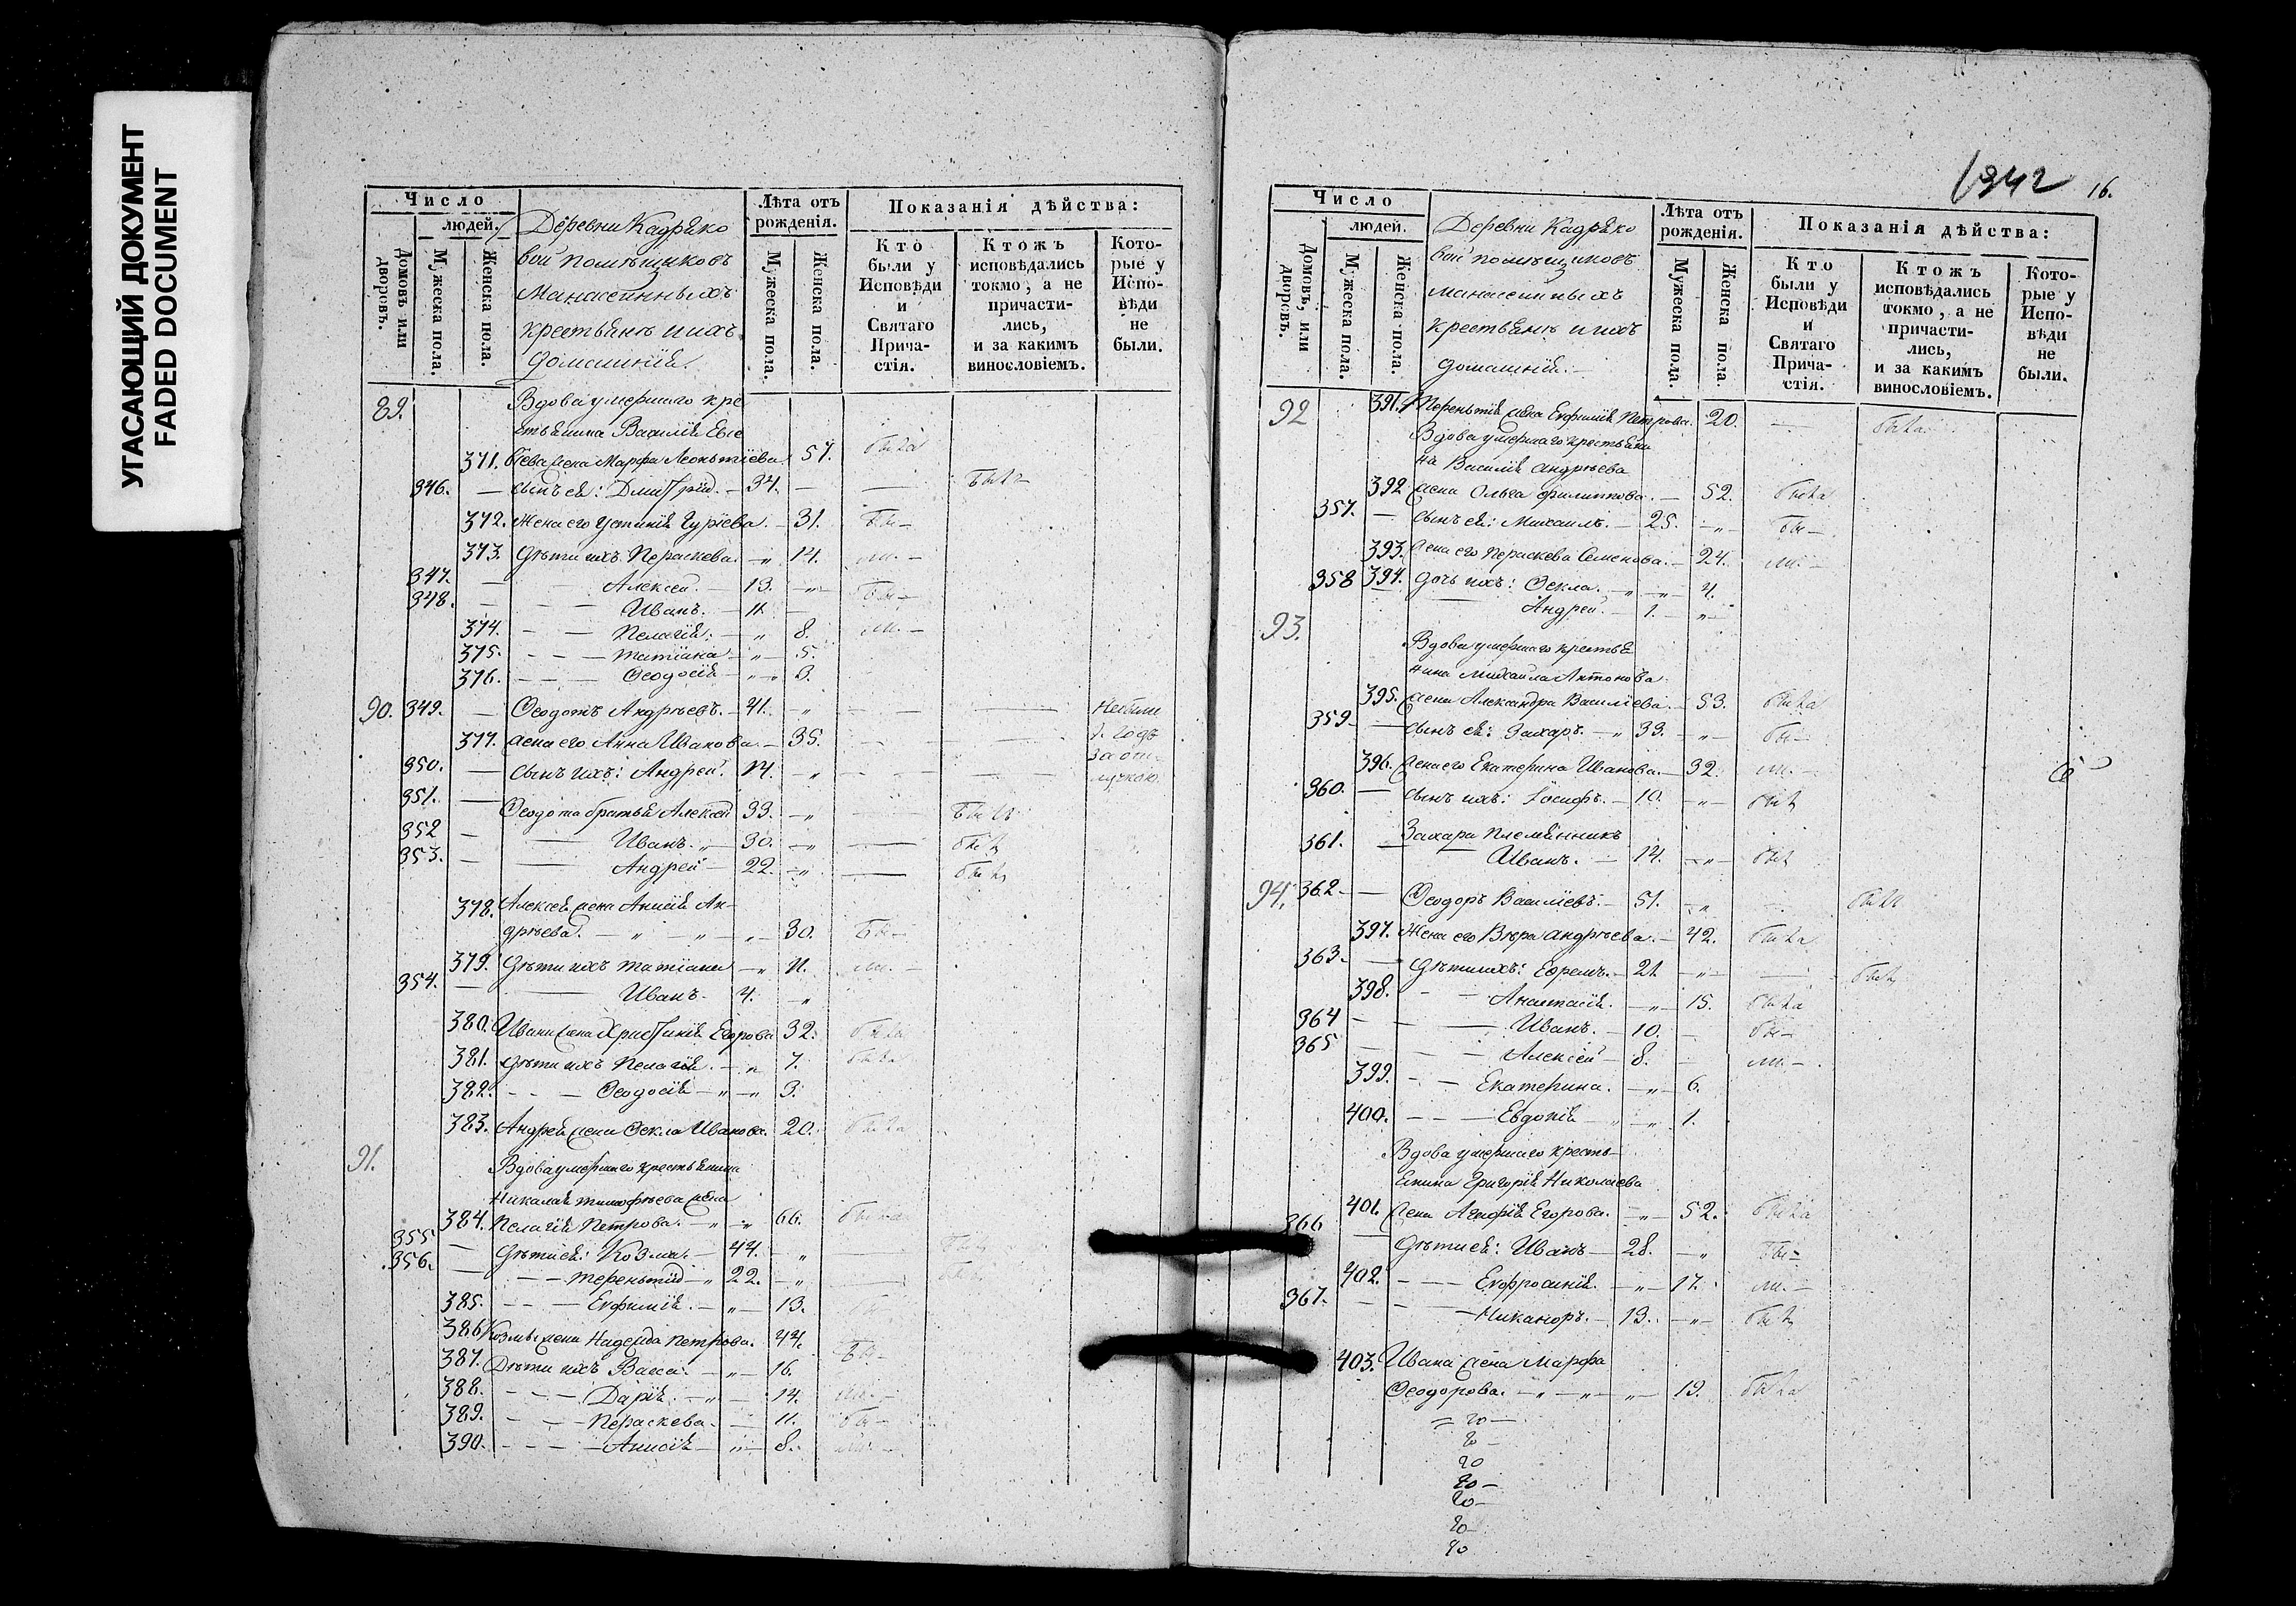 УГАСАЮЩИЙ ДОКУМЕНТ
FADED DOCUMENT
Число
людей.
Домовъ или дворовъ.
Мужеска пола.
Женска пола.
Деревни Кадряко
вой помѣщиковъ
Манассиныхъ
крестьянъ и ихъ
домашнiя.
Лѣта отъ рожденія.
Мужеска пола.
Женска пола.
Показанія дѣйства:
Кто были у Исповѣди и Святаго Причастія.
Ктожъ исповѣдались токмо, а не причастились, и за какимъ винословіемъ.
Которые у Исповѣди не были.
89. Вдова умершаго кре
стьянина Василiя Евсе
371. ѣева жена Марфа Леонтiева 57. была
346. — сынъ ея: Дмитрiй. — 34. — былъ
372. Жена его Устинiя Гурiева. — 31. бы—
373. Дѣти ихъ Параскева. — " 14. ли. —
347. — Алексей. — 13. — " бы—
348. — Иванъ. — 11. —
374. — Пелагiя. — " 8. ли. —
375. — Татiана — " 5.
376. — Ѳеодосiя — " 3.
90. 349. — Ѳеодотъ Андрѣевъ. — 41. — " Небыли
377. жена его Анна Иванова. — 35. 1. годъ
350. — сынъ ихъ: Андрей. 14. — " за от-
лучкою.
351. — Ѳеодота братья Алексей 33. — " былъ
352 — Иванъ. " — 30. — " былъ
353. — Андрей — 22. — " былъ
378. Алексея жена Анисiя Ан-
дрѣева. — " — " — 30. бы—
379. Дѣти ихъ Татiана — " 11. ли. —
354. — Иванъ. 4. — "
380. Ивана жена Христинiя Егорова 32. была
381. Дѣти ихъ Пелагiя. — " 7. была
382. — Ѳеодосiя — " — " 3.
383. Андрея жена Ѳекла Иванова. 20. была
91. Вдова умершаго крестьянина
Николая Тимофѣева жена
384. Пелагiя Петрова. — " — " 66. была
355 — Дѣти ея: Козма. — 44. — " былъ
356. — Терентiй — " 22. — "
385. — Евфимiя. — " — 13. бы—
386. Козмы жена Надежда Петрова. 44.
387. Дѣти ихъ Васса. — " — 16. бы—
388. — Дарiя. — " — 14. ли. —
389. — Параскева. — 11. бы—
390. — Анисiя — " — 8. ли. —
1342 16.
Число
людей.
Домовъ, или дворовъ.
Мужеска пола.
Женска пола.
Деревни Кадряко
вой помѣщиковъ
Манассиныхъ
крестьянъ и ихъ
домашнiя. —
Лѣта отъ рожденія.
Мужеска пола.
Женска пола.
Показанія дѣйства:
Кто были у Исповѣди и Святаго Причастія.
Ктожъ исповѣдались токмо, а не причастились, и за какимъ винословіемъ.
Которые у Исповѣди не были.
92 391. Терентiя жена Евфимiя Петрова. 20. — была
Вдова умершаго крестьяни
на Василiя Андрѣева
392. жена Ольга Филиппова. — 52. была
357. — сынъ ея: Михаилъ. — 25. — " бы—
393. жена его Параскева Семенова. — 24. ли. —
394. Дочь ихъ: Ѳекла. — " — " 4.
358 — Андрей. — 1. — "
93. Вдова умершаго крестья
нина Михаила Антонова
395. жена Александра Василiева. — 53. была
359. — сынъ ея: Захаръ. — " 33. — " бы—
396. жена его Екатерина Иванова. — 32. ли. —
360. — сынъ ихъ: Iосифъ. — 10. — " былъ
361. — Захара племянникъ
Иванъ. — 14. — " былъ
94. 362. — Ѳеодоръ Василiевъ. — 51. — " былъ
397. Жена его Вѣра Андрѣева. — 42. была
363. — Дѣти ихъ: Ефремъ. — 21. — " — былъ
398. — Анастасiя. — " 15. была
364 — Иванъ. — 10. — бы—
365 — Алексей — 8. — ли. —
399. — Екатерина. — " 6.
400. — Евдокiя — " — " 1.
Вдова умершаго кресть—
янина Григорiя Николаева
401. жена Агафiя Егорова. — " 52. была
366 — Дѣти ея: Иванъ — 28. — " бы—
402. — Евфросинiя. — " 17. ли. —
367. — Никаноръ. — 13. — " былъ
403. Ивана жена Марфа
Ѳеодорова. — " — " — " 19. была